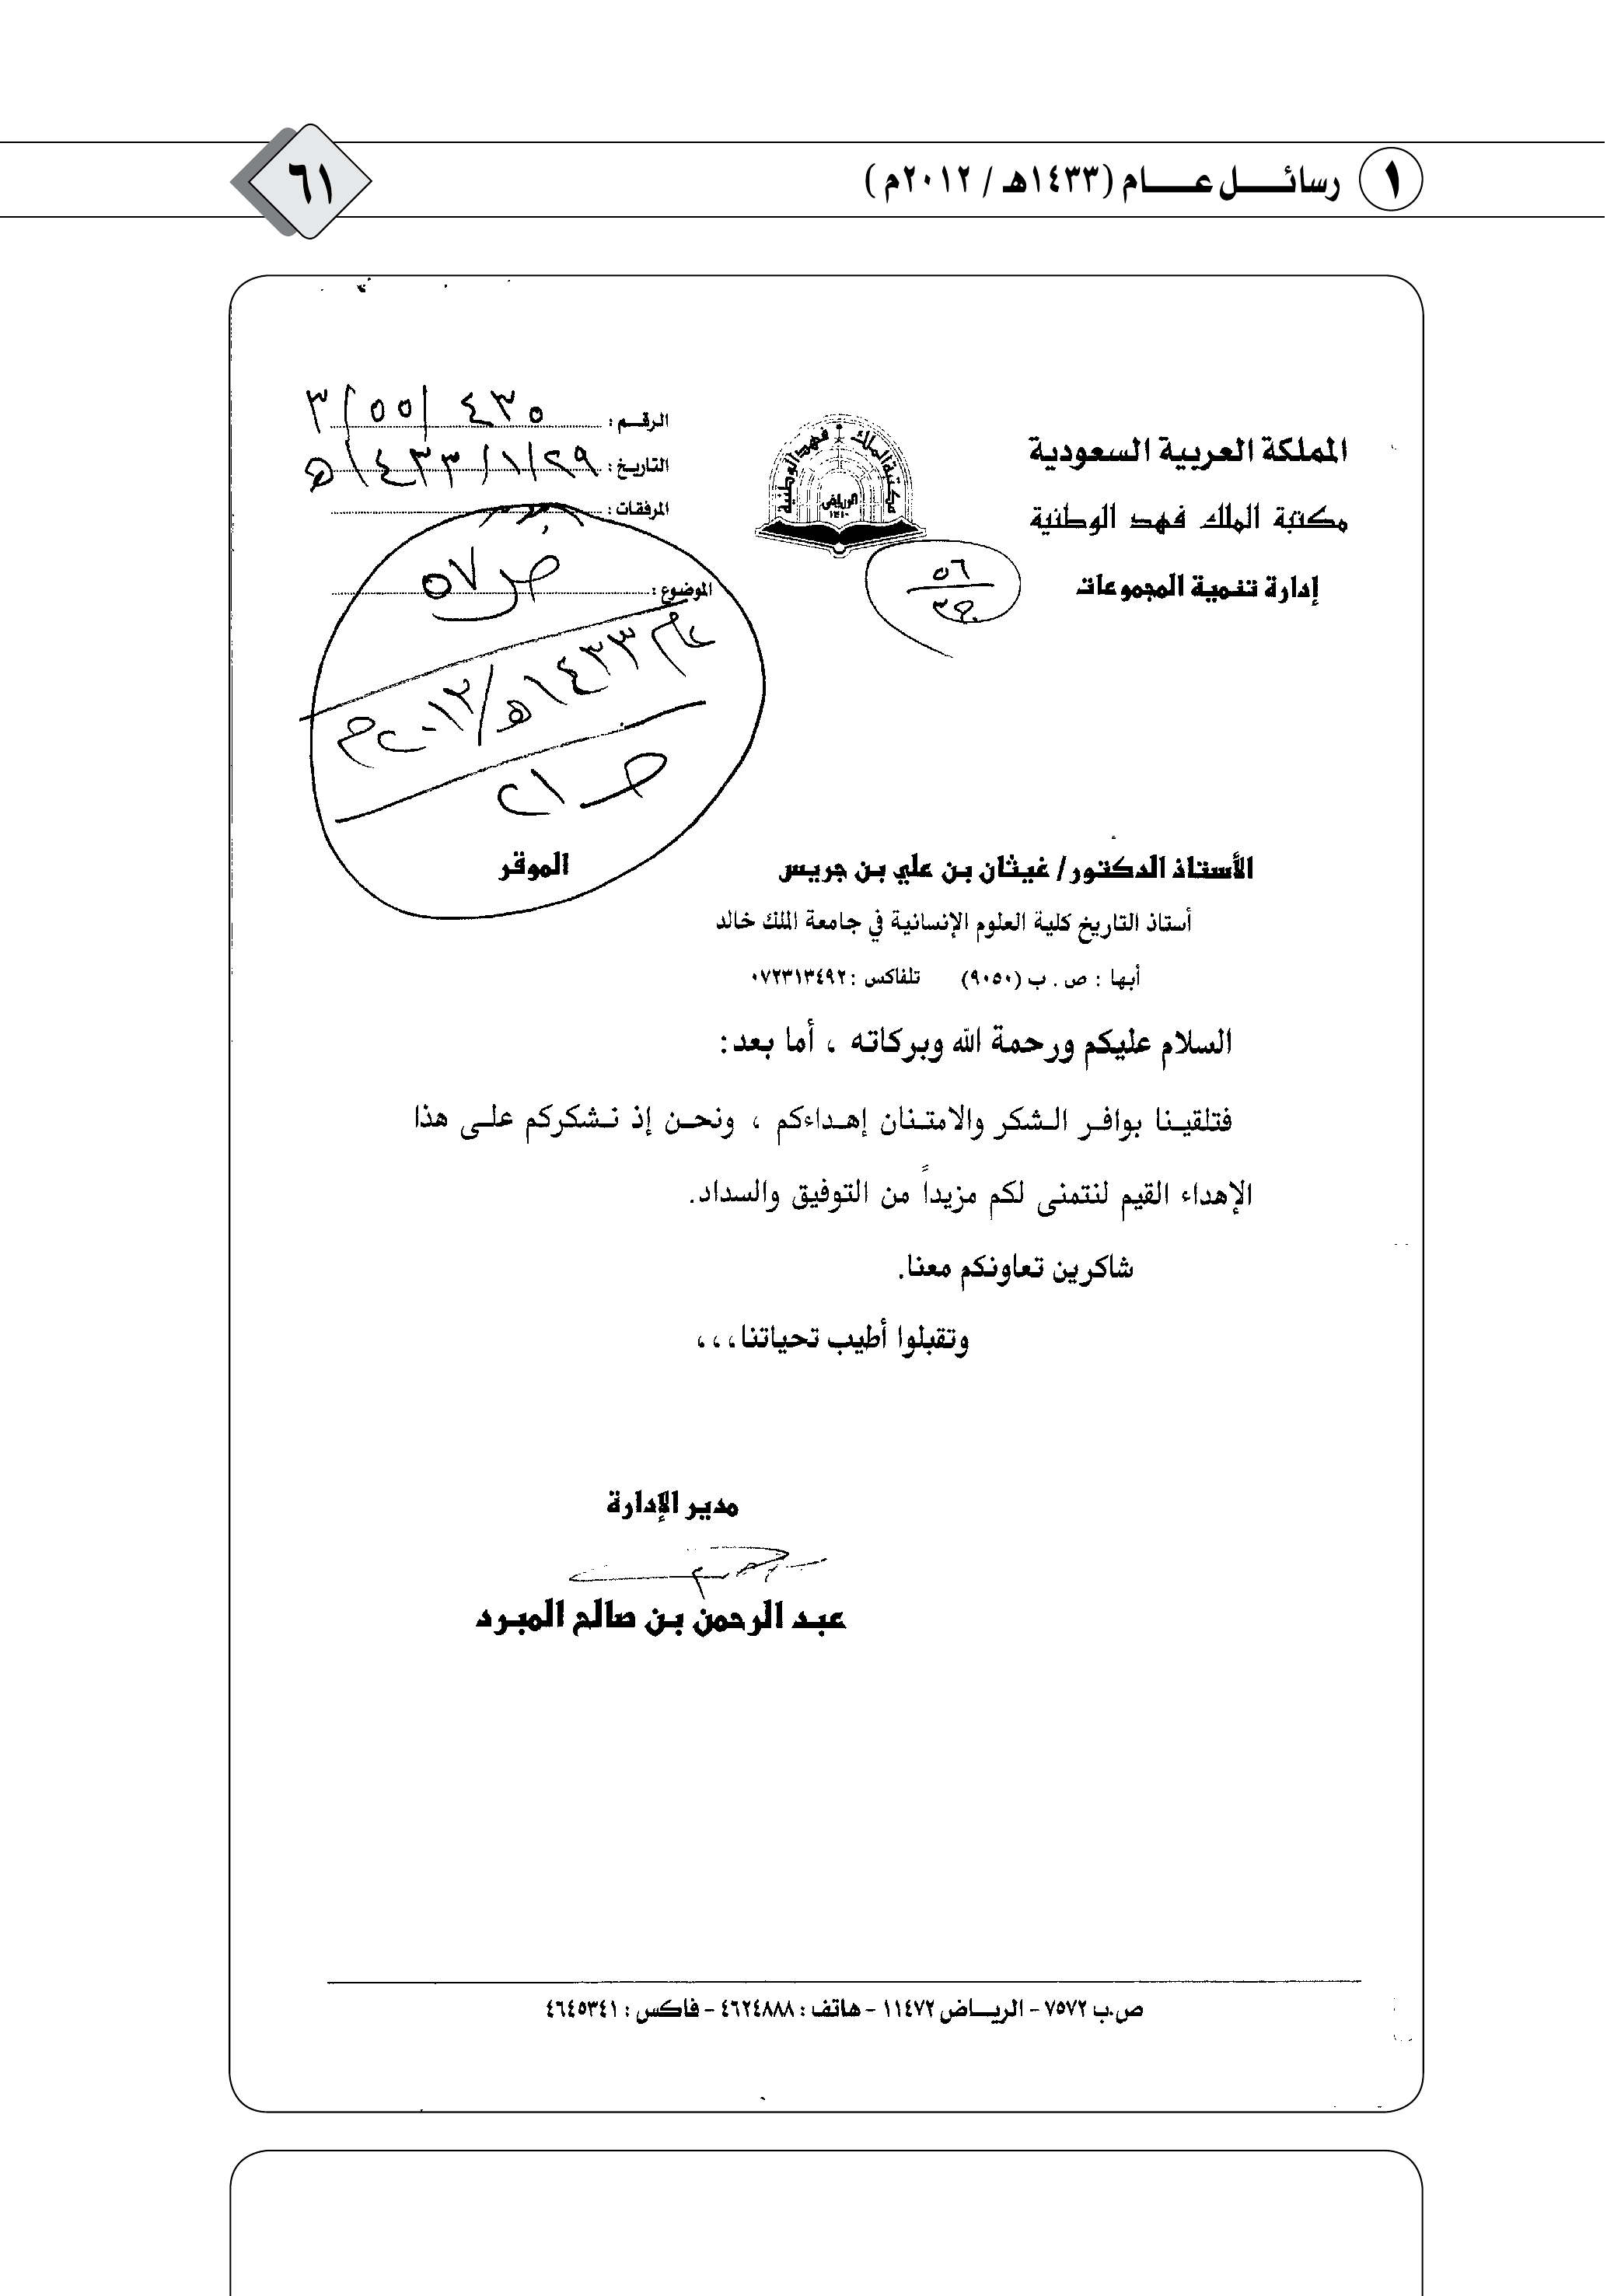 ١ رسائــــل عــــام (١٤٣٣هـ / ٢٠١٢م )
٦١
المملكة العربية السعودية
مكتبة الملك فهد الوطنية
إدارة تنمية المجموعات
مكتبة الملك فهد الوطنية
الرياض
الرقـم : ٤٣٠ /٥٥/ ٣
التاريخ : ٢٩/ ١/ ١٤٣٣ هـ
المرفقات :
الموضوع :
٥٦
ج٣
ص ٥٧
عام ١٤٣٣هـ/٢٠١٢م
ص ٢١
الأستاذ الدكتور/ غيثان بن علي بن جريس الموقر
أستاذ التاريخ كلية العلوم الإنسانية في جامعة الملك خالد
أبها : ص . ب (٩٠٥٠) تلفاكس : ٠٧٢٣١٣٤٩٢
السلام عليكم ورحمة الله وبركاته ، أما بعد:
فتلقينا بوافر الشكر والامتنان إهداءكم ، ونحن إذ نشكركم على هذا
الإهداء القيم لنتمنى لكم مزيداً من التوفيق والسداد.
شاكرين تعاونكم معنا.
وتقبلوا أطيب تحياتنا،،،
مدير الإدارة
عبد الرحمن بن صالح المبرد
ص.ب ٧٥٧٢ - الريـاض ١١٤٧٢ - هاتف : ٤٦٢٤٨٨٨ - فاكس : ٤٦٤٥٣٤١